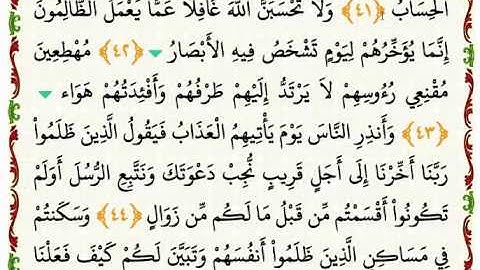 الْحِسَابُ ﴿٤١﴾ وَلَا تَحْسَبَنَّ اللَّهَ غَافِلًا عَمَّا يَعْمَلُ الظَّالِمُونَ
إِنَّمَا يُؤَخِّرُهُمْ لِيَوْمٍ تَشْخَصُ فِيهِ الْأَبْصَارُ ﴿٤٢﴾ مُهْطِعِينَ
مُقْنِعِي رُءُوسِهِمْ لَا يَرْتَدُّ إِلَيْهِمْ طَرْفُهُمْ وَأَفْئِدَتُهُمْ هَوَاء
﴿٤٣﴾ وَأَنذِرِ النَّاسَ يَوْمَ يَأْتِيهِمُ الْعَذَابُ فَيَقُولُ الَّذِينَ ظَلَمُواْ
رَبَّنَا أَخِّرْنَا إِلَى أَجَلٍ قَرِيبٍ نُّجِبْ دَعْوَتَكَ وَنَتَّبِعِ الرُّسُلَ أَوَلَمْ
تَكُونُواْ أَقْسَمْتُم مِّن قَبْلُ مَا لَكُم مِّن زَوَالٍ ﴿٤٤﴾ وَسَكَنتُمْ
فِي مَسَاكِنِ الَّذِينَ ظَلَمُواْ أَنفُسَهُمْ وَتَبَيَّنَ لَكُمْ كَيْفَ فَعَلْنَا